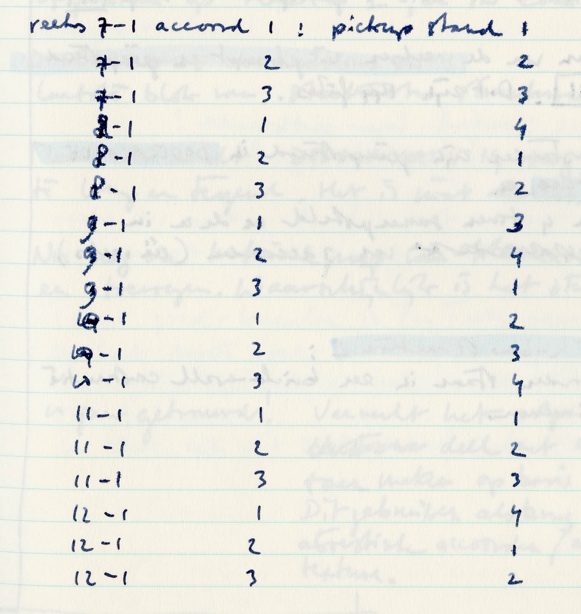 reeks 7-1 accoord 1 : pickup stand 1
7-1 2 2
7-1 3 3
8-1 1 4
8-1 2 1
8-1 3 2
9-1 1 3
9-1 2 4
9-1 3 1
10-1 1 2
10-1 2 3
10-1 3 4
11-1 1 1
11-1 2 2
11-1 3 3
12-1 1 4
12-1 2 1
12-1 3 2